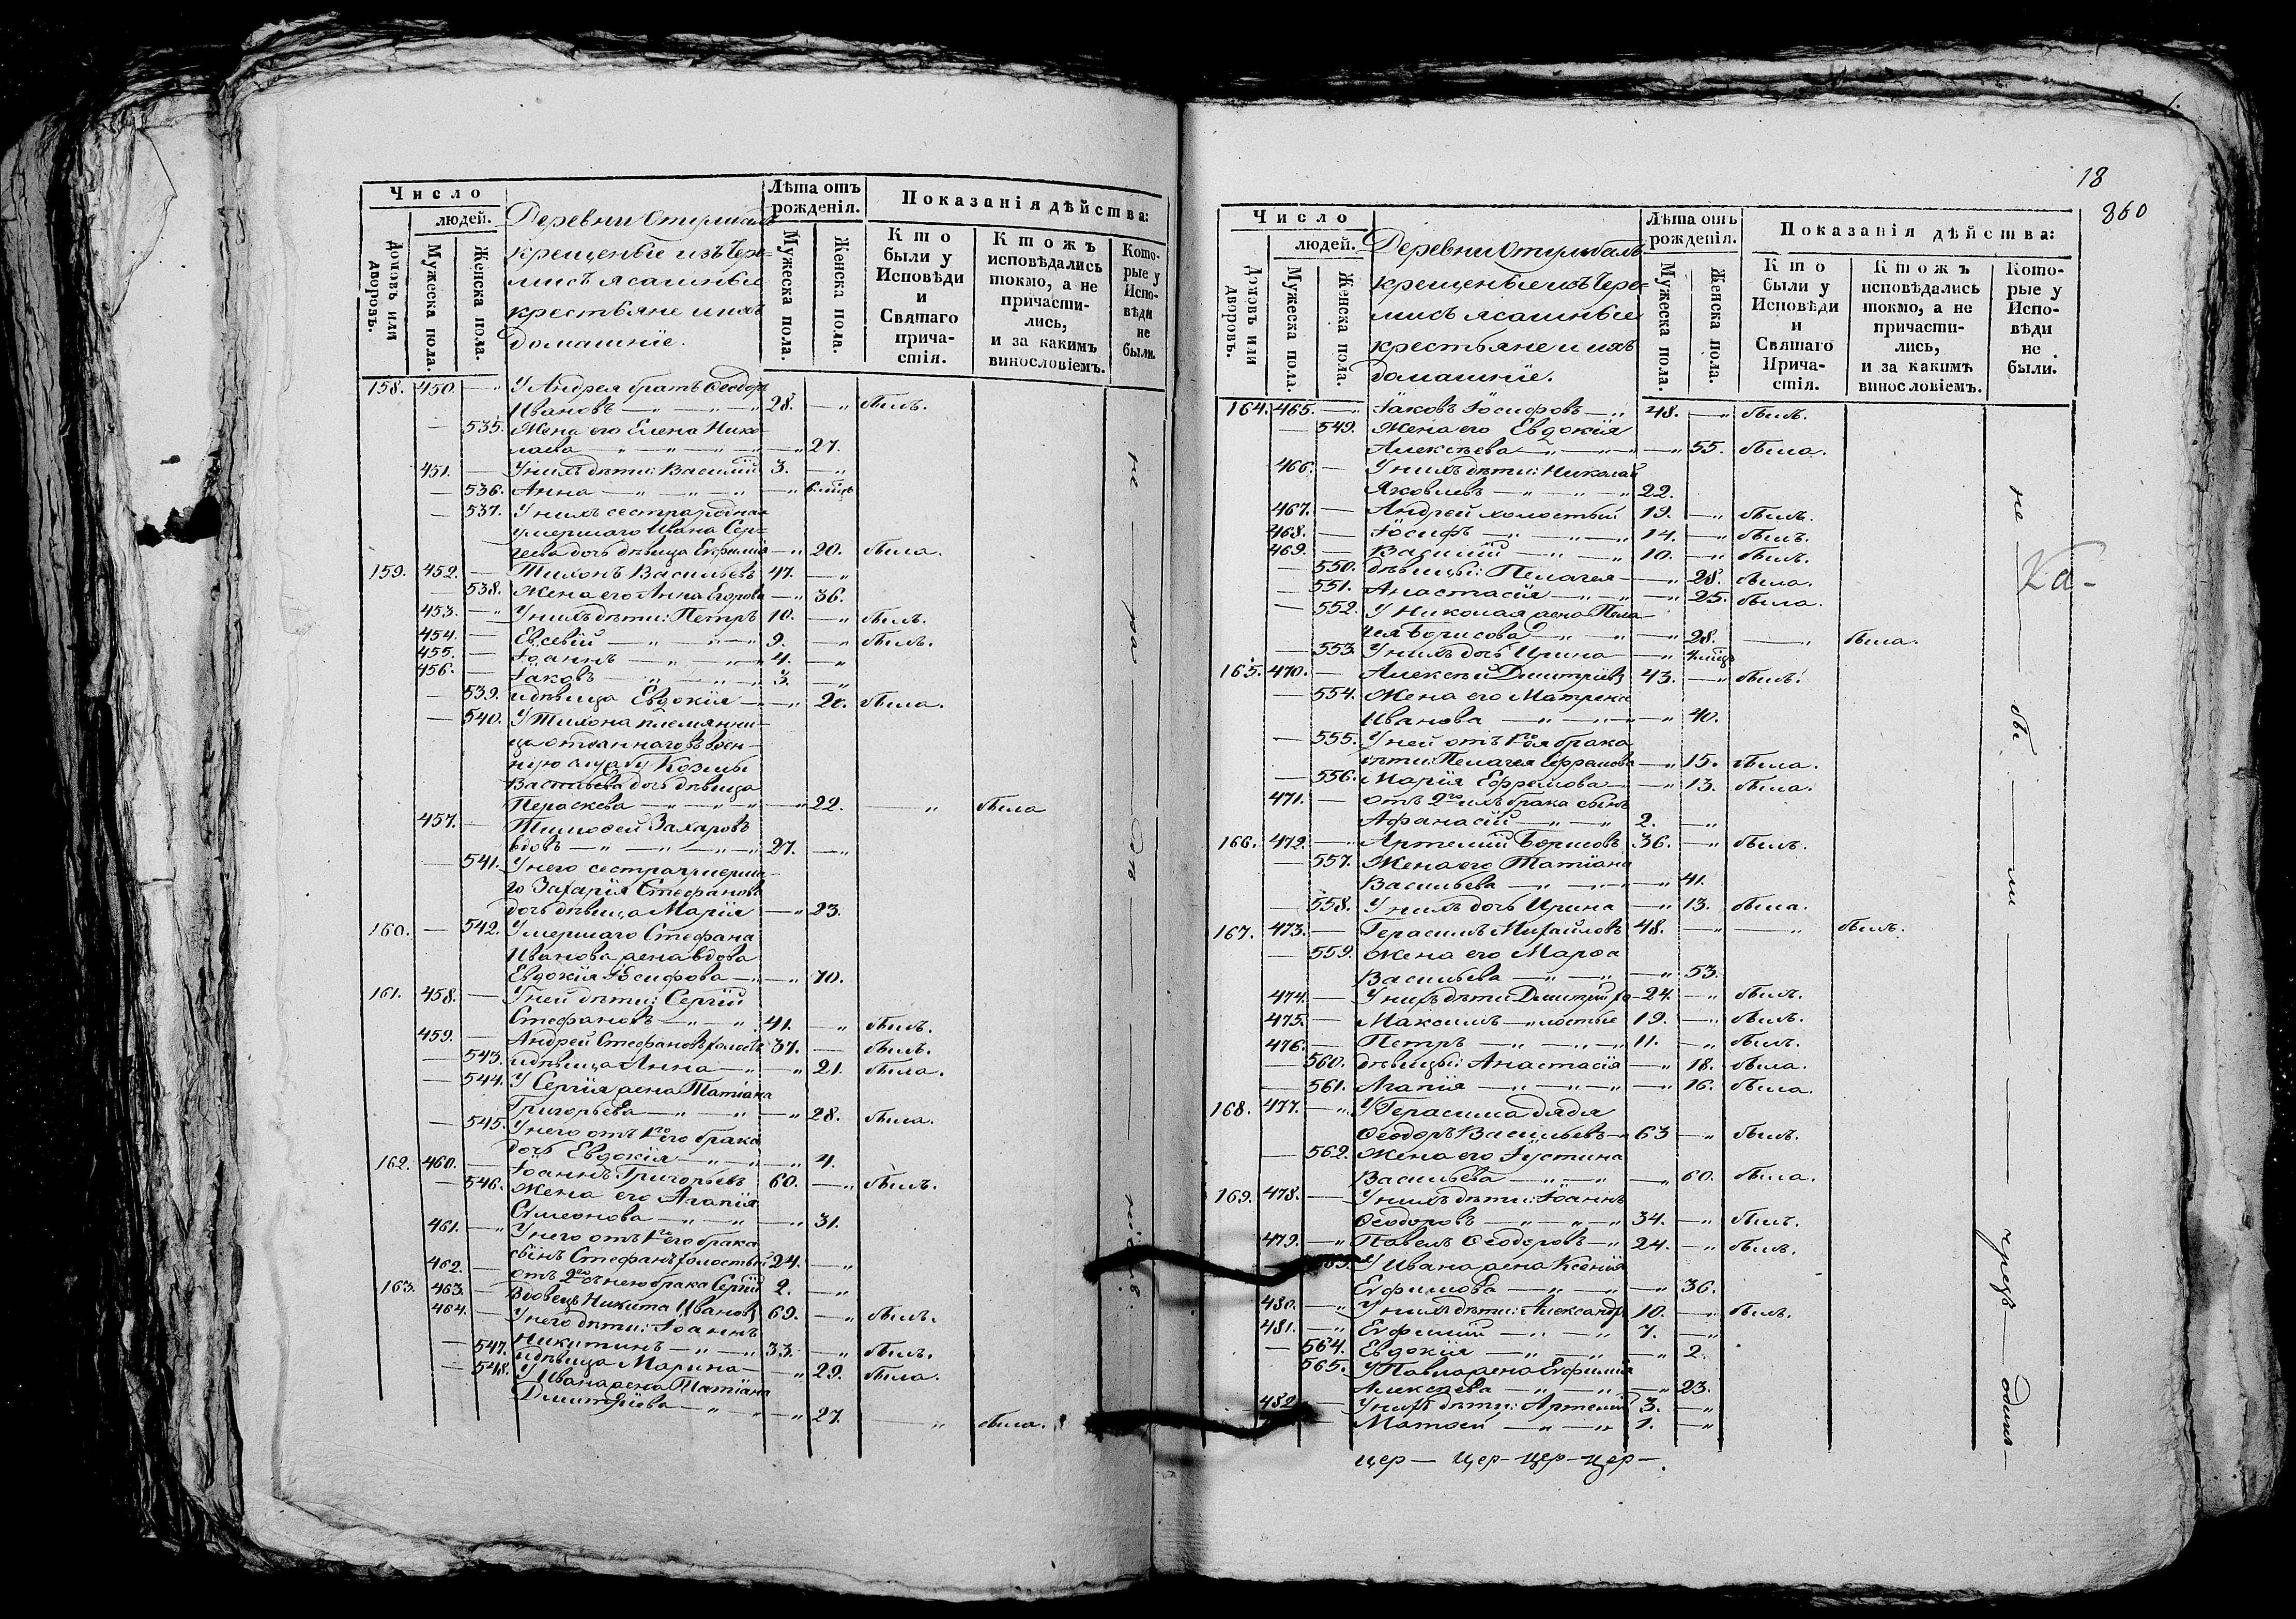 Число
людей.
Домовъ или дворовъ.
Мужеска пола.
Женска пола.
Деревни
крещеные изъ Чере=
мисъ ясашные
крестьяне и ихъ
домашніе.
Лѣта отъ рожденія.
Мужеска пола.
Женска пола.
Показанія дѣйства:
Кто были у Исповѣди и Святаго причастія.
Ктожъ исповѣдались токмо, а не причастились, и за какимъ винословіемъ.
Которые у Исповѣди не были.
158. 450. — У Андрея братъ Ѳеодоръ
Ивановъ — 28. — былъ.
— 535. Жена его Елена Нико-
лаева — 27.
451. — У нихъ дѣти: Василій 3. —
— 536. Анна — 6 мцъ
— 537. У нихъ сестра родная
умершаго Ивана Сер-
геева дочь дѣвица Евфимія — 20. была.
159. 452. — Тихонъ Васильевъ 47. —
— 538. Жена его Анна Егорова — 36.
453. — У нихъ дѣти: Петръ 10. — былъ.
454. — Евсевій — 9. — былъ.
455. — Іоаннъ — 4. —
456. — Іаковъ — 3. —
— 539. и дѣвица Евдокія — 20. была.
— 540. У Тихона племянни-
ца отданнаго въ воен-
ную службу Козмы
Васильева дочь дѣвица
Параскева — 22. — была
457. — Тимоѳей Захаровъ
вдовъ — 27. —
— 541. У него сестра умерша-
го Захарія Стефанова
дочь дѣвица Марія — 23.
160. — 542. Умершаго Стефана
Иванова жена вдова
Евдокія Іосифова — 70.
161. 458. — У ней дѣти: Сергій
Стефановъ — 41. — былъ.
459. — Андрей Стефановъ холостъ 37. — былъ.
— 543. и дѣвица Анна — 21. была.
— 544. У Сергія жена Татіана
Григорьева — 28. была.
— 545. У него отъ 1го его брака
дочь Евдокія — 4.
162. 460. — Іоаннъ Григорьевъ 60. — былъ.
— 546. Жена его Агапія
Симеонова — 31.
461. — У него отъ 1го его брака
сынъ Стефанъ холостый 24. —
462. — отъ 2го съ нею брака Сергій 2. —
163. 463. — Вдовецъ Никита Ивановъ 69. — былъ.
464. — У него дѣти: Іоаннъ
Никитинъ — 33. — былъ.
— 547. и дѣвица Марина — 29. была.
— 548. У Ивана жена Татіана
Димитріева — 27. — была.
не — ра —
18
860
Число
людей.
Домовъ или дворовъ.
Мужеска пола.
Женска пола.
Деревни
крещеные изъ Чере=
мисъ ясашные
крестьяне и ихъ
домашніе.
Лѣта отъ рожденія.
Мужеска пола.
Женска пола.
Показанія дѣйства:
Кто были у Исповѣди и Святаго Причастія.
Ктожъ исповѣдались токмо, а не причастились, и за какимъ винословіемъ.
Которые у Исповѣди не были.
164. 465. — Іаковъ Іосифовъ — 48. — былъ.
— 549. Жена его Евдокія
Алексѣева — 55. была.
466. — У нихъ дѣти: Николай
Яковлевъ — 22.
467. — Андрей холостый 19. — былъ.
468. — Іосифъ — 14. — былъ.
469. — Василій — 10. — былъ.
— 550. дѣвицы: Пелагея — 28. была.
— 551. Анастасія — 25. была.
— 552. У Николая жена Пела-
гея Борисова — 28. — была.
— 553. У нихъ дочь Ирина — 4 мцъ
165. 470. — Алексѣй Димитріевъ 43. — былъ.
— 554. Жена его Матрена
Иванова — 40.
— 555. У ней отъ 1го ея брака
дѣти: Пелагея Ефремова — 15. была.
— 556. Марія Ефремова — 13. была.
471. — отъ 2го ихъ брака сынъ
Афанасій — 2. —
166. 472. — Артемій Борисовъ 36. — былъ.
— 557. Жена его Татіана
Васильева — 41.
— 558. У нихъ дочь Ирина — 13. была.
167. 473. — Герасимъ Михайловъ 48. — былъ.
— 559. Жена его Марѳа
Васильева — 53.
474. — У нихъ дѣти Димитрій хо- 24. — былъ.
475. — Максимъ — лостые 19. — былъ.
476. — Петръ — 11. — былъ.
— 560. дѣвицы: Анастасія — 18. была.
— 561. Агапія — 16. была.
168. 477. — У Герасима дядя
Ѳеодоръ Васильевъ — 63 — былъ.
— 562. Жена его Іустина
Васильева — 60. была.
169. 478. — У нихъ дѣти: Іоаннъ
Ѳеодоровъ — 34. — былъ.
479. — Павелъ Ѳеодоровъ — 24. — былъ.
У Ивана жена Ксенія
Евфимова — 36.
480. — У нихъ дѣти: Александръ 10. — былъ.
481. — Евфимій — 7. —
— 564. Евдокія — 2.
— 565. У Павла жена Евфимія
Алексѣева — 23.
482. — У нихъ дѣти: Артемій 3. —
Матѳей — 1. —
цер — цер — цер — цер —
не — бы — ли — чрезъ —
Ка-